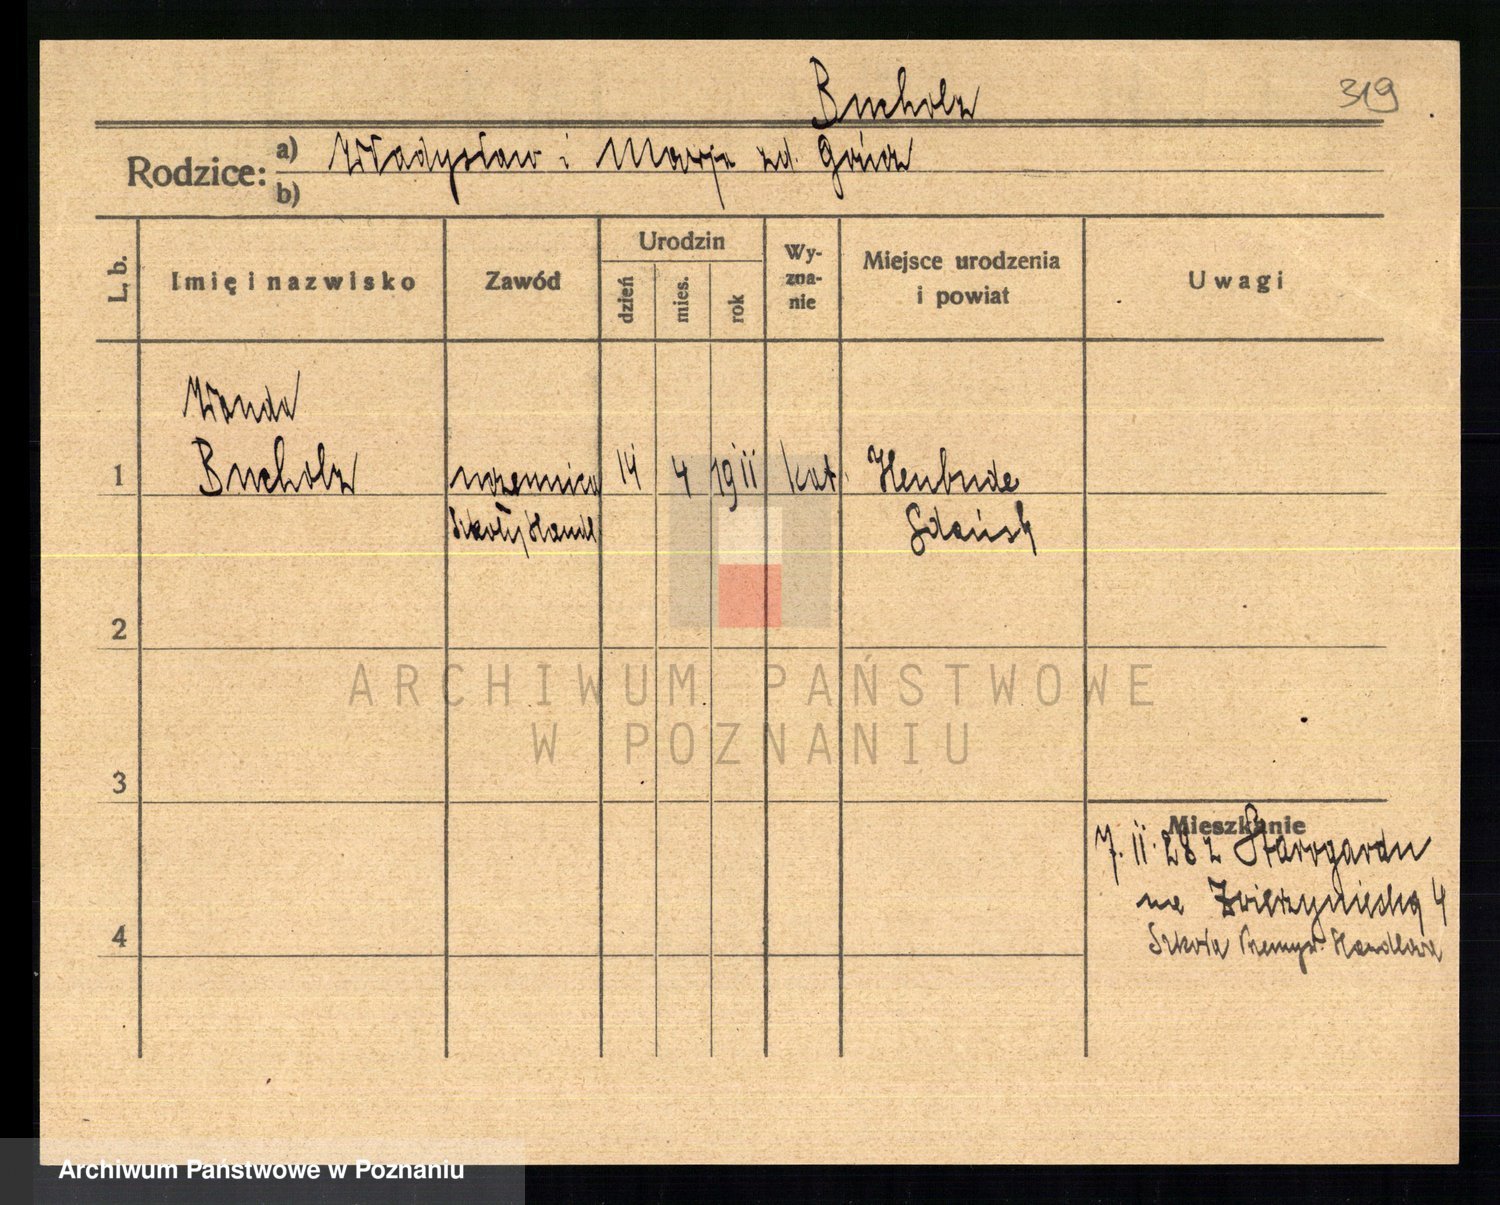 Bucholz
319
Rodzice: a) Władysław i Marja zd. Górcz
b)
L. b.
Imię i nazwisko
Zawód
Urodzin
dzień
mies.
rok
Wy-
zna-
nie
Miejsce urodzenia
i powiat
Uwagi
Wanda
1 Bucholz uczennica 14 4 1911 kat. Heubude
Szkoły Handl Gdańsk
2
3
4
Mieszkanie
7. 11. 28 z Starogardu
na Zwierzyniecką 4
Szkoła Przemysł. Handlowa
ARCHIWUM PAŃSTWOWE
W POZNANIU
Archiwum Państwowe w Poznaniu